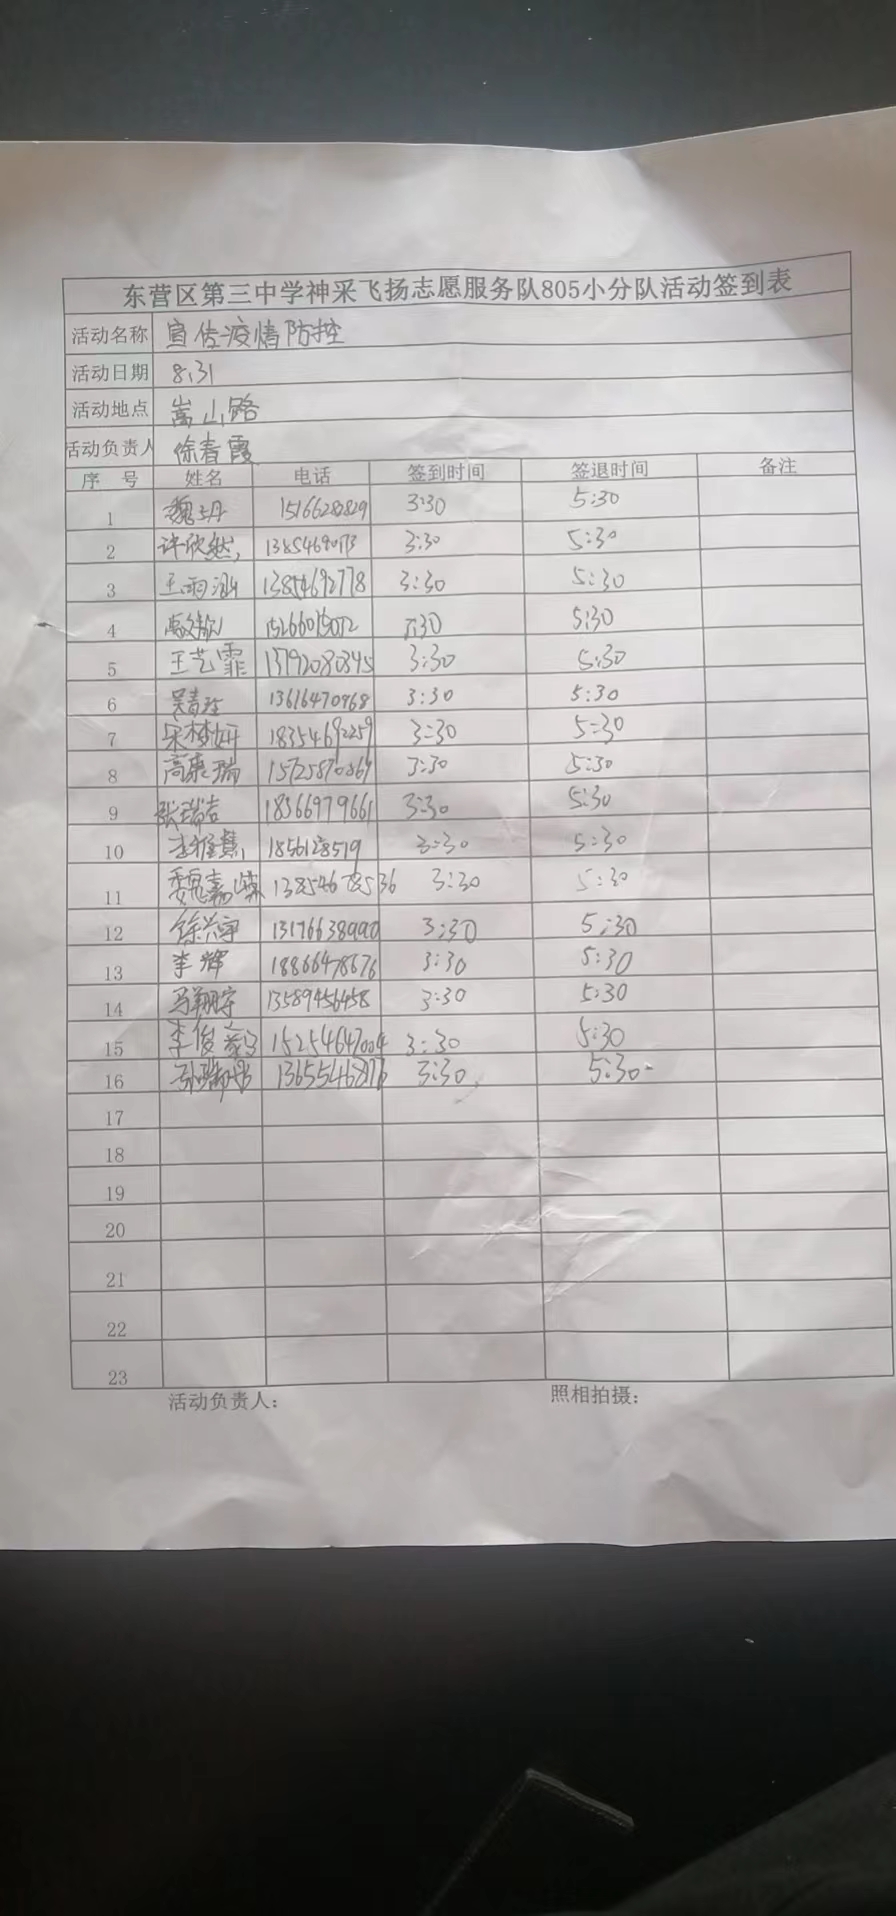 东营区第三中学神采飞扬志愿服务队805小分队活动签到表
活动名称 宣传疫情防控
活动日期 8.31
活动地点 嵩山路
活动负责人 徐春霞
序 号 姓名 电话 签到时间 签退时间 备注
1 3:30 5:30
2 许欣然 3:30 5:30
3 13854692778 3:30 5:30
4 5:30
5 王艺霏 13792080345 3:30 5:30
6 13616470968 3:30 5:30
7 宋梦妍 18354692259 3:30 5:30
8 高康瑞 3:30 5:30
9 张瑞吉 18366979661 3:30 5:30
10 1856128519 3:30 5:30
11 13854678536 3:30 5:30
12 徐兴宇 13176638990 3:30 5:30
13 李辉 18866478676 3:30 5:30
14 马翔宇 13589456458 3:30 5:30
15 15254647004 3:30 5:30
16 3:30 5:30
17
18
19
20
21
22
23
活动负责人: 照相拍摄: